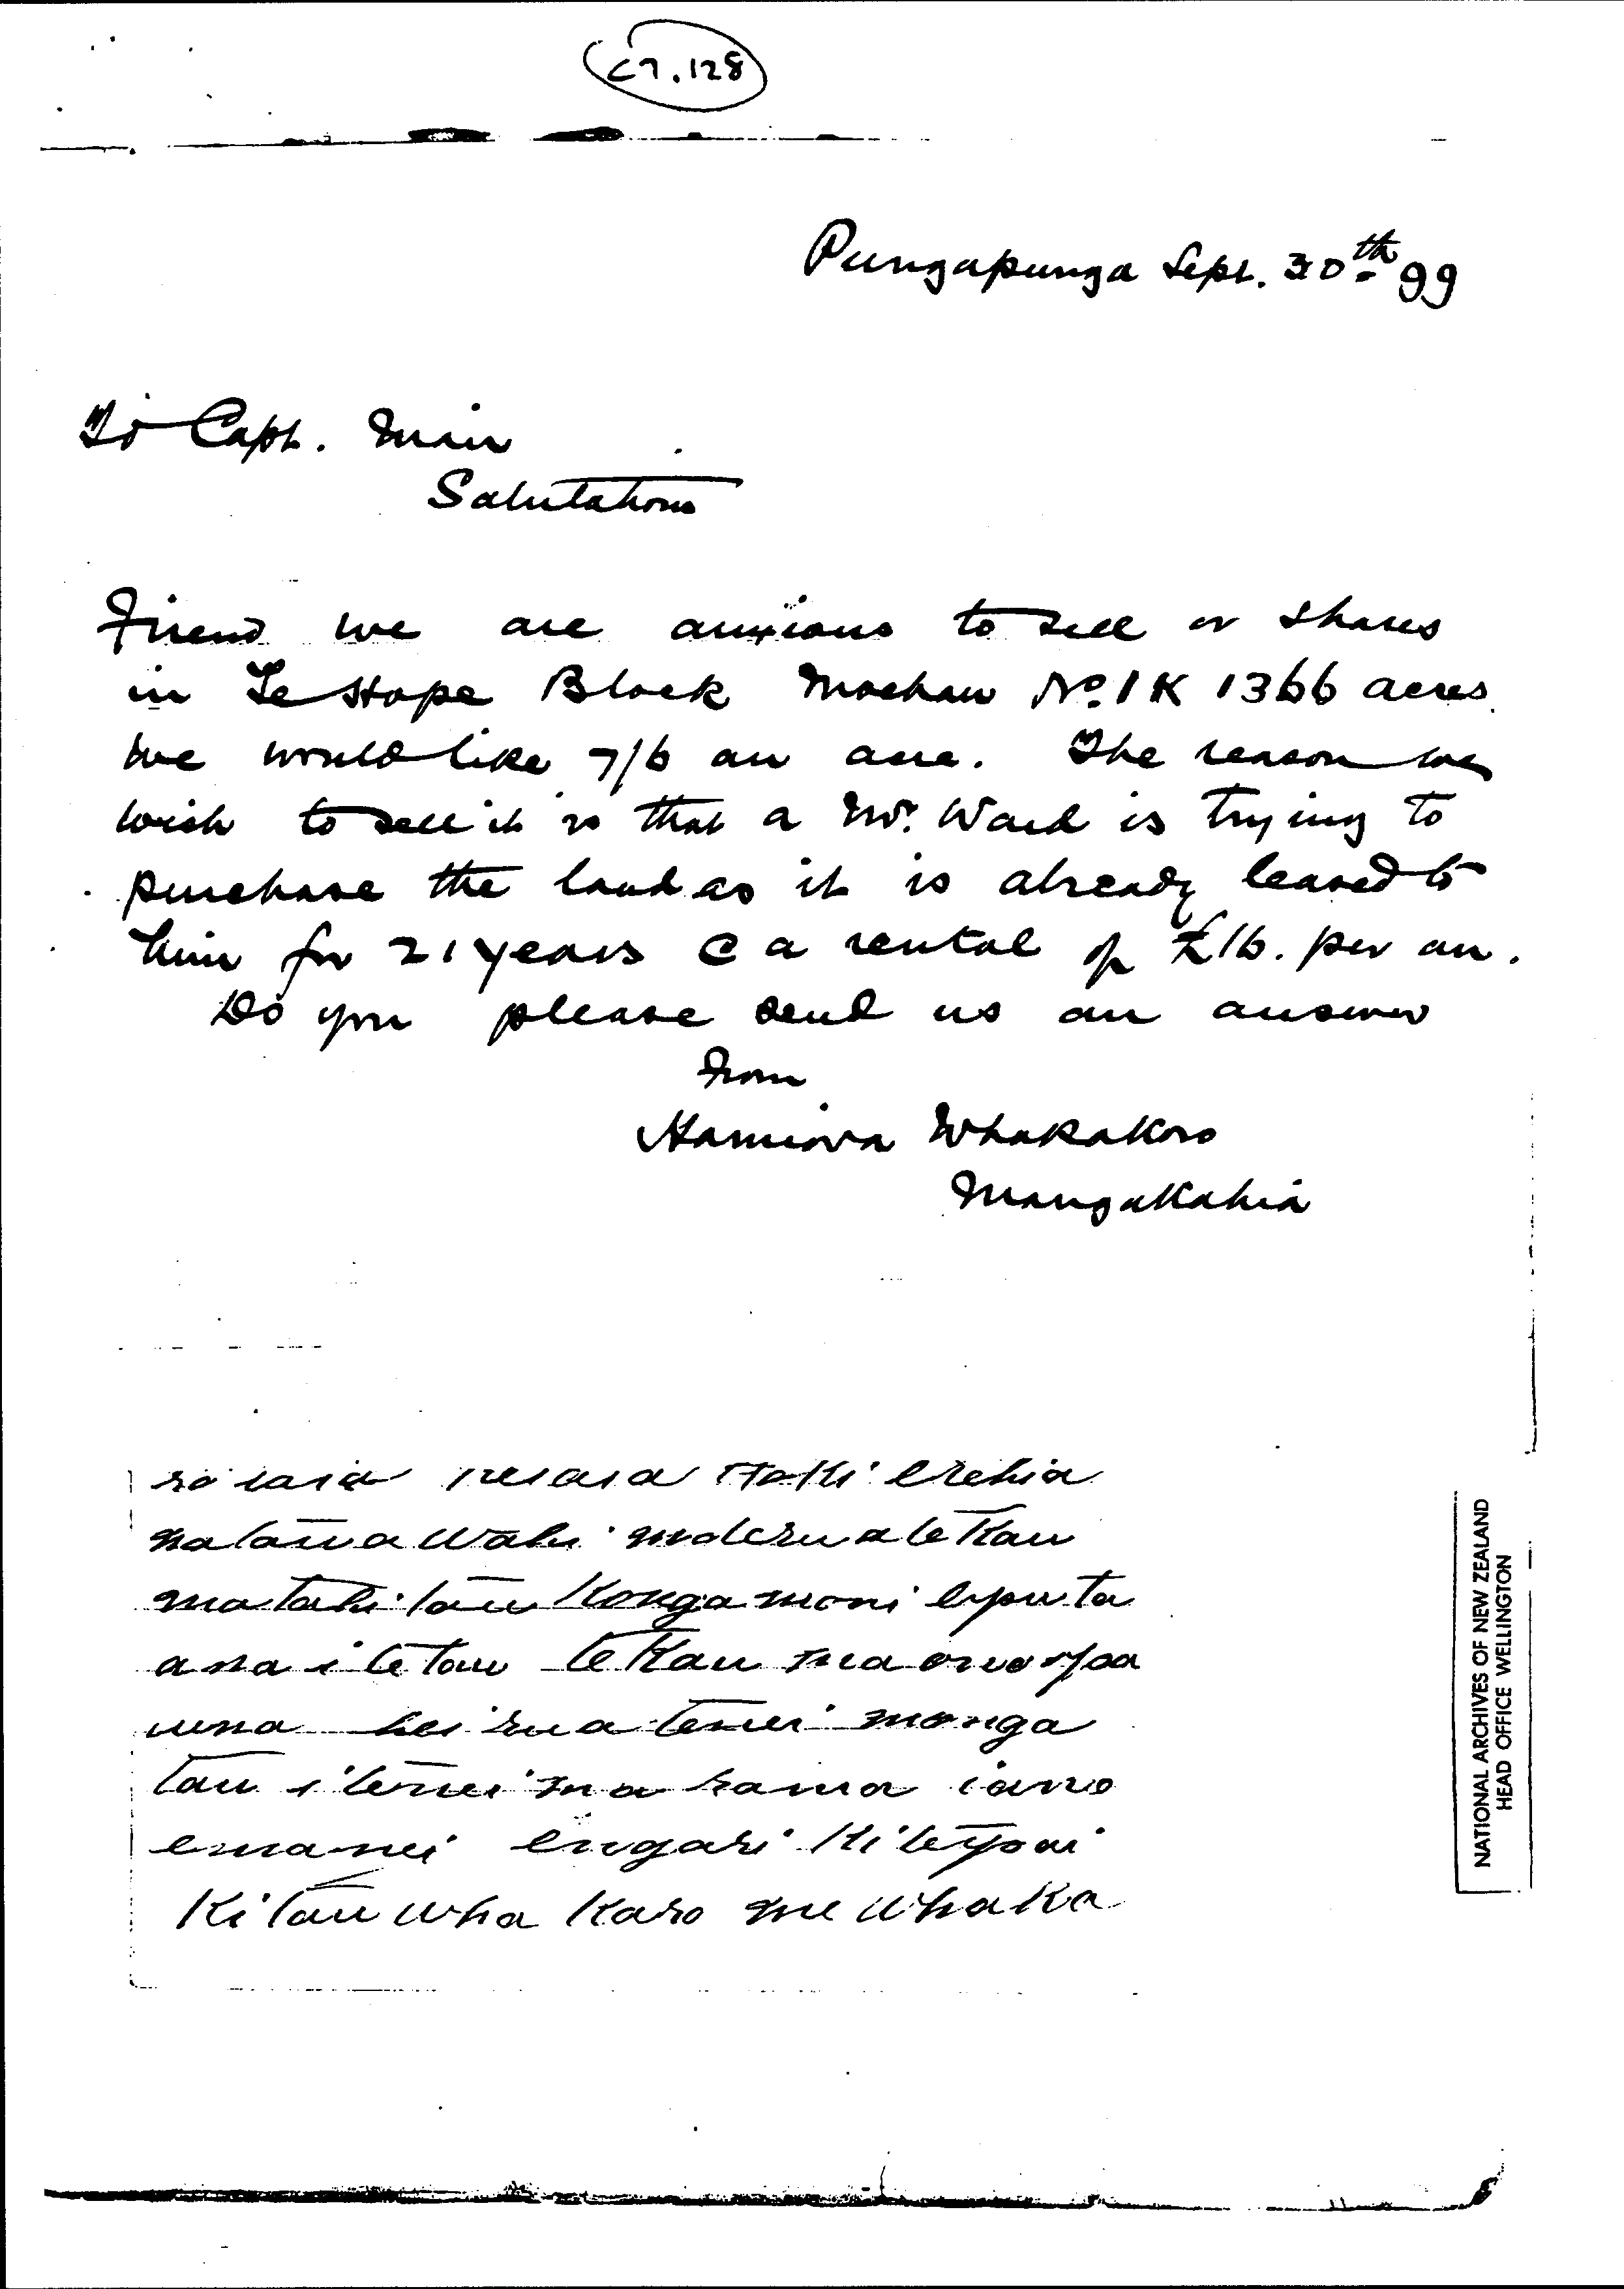 C7.128
Pungapunga Sept. 30th 99
To Capt. Mair
Salutations
Friend we are anxious to sell or shares
in Te Hape Block Moehau No. 1K 1366 acres
We would like 7/6 an acre. The reason we
wish to sell it is that a Mr. Ward is trying to
purchase the land as it is already leased to
him for 21 years @ a rental of £16. per an.
Do you please send us an answer
from
Hamiora Whakakoro
Mangakahia
nataua wahi moterua tekau
matahi tau konga moni eputa
ana i tetau tekau ma ono paa
una hei rua tenei monga
tau i tenei marama iano
emanei engari kitepai
Kitau whakaro me whaka
NATIONAL ARCHIVES OF NEW ZEALAND
HEAD OFFICE WELLINGTON